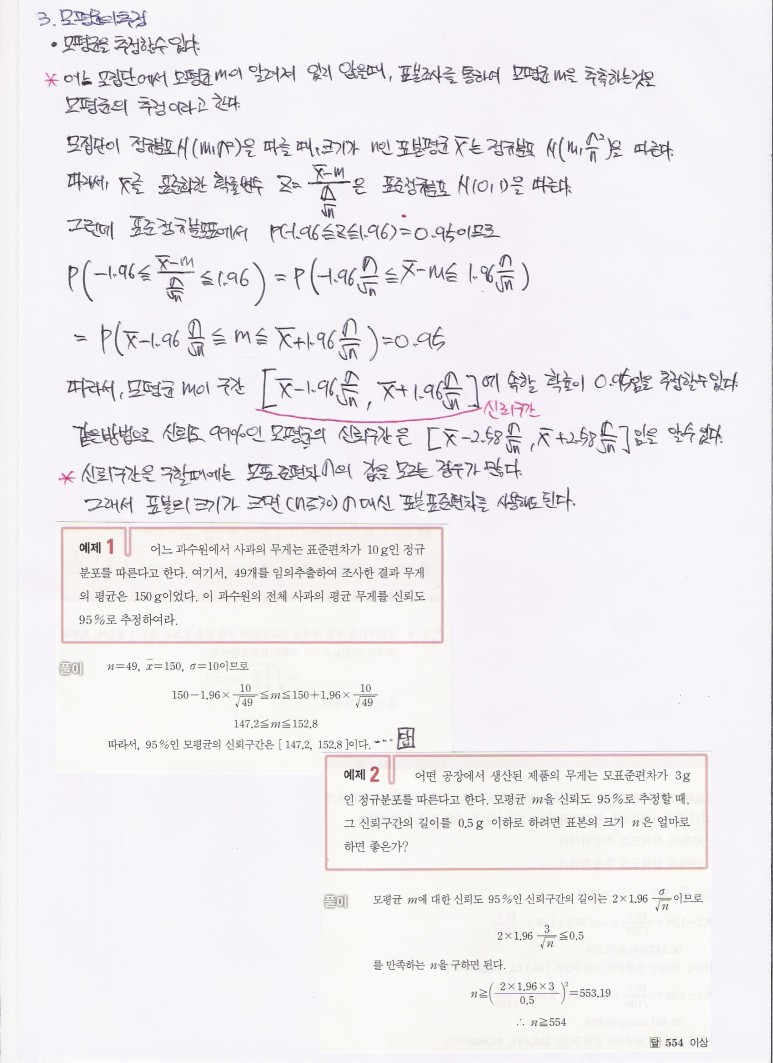 3. 모평균의 추정
• 모평균을 추정할수 있다.
* 어느 모집단에서 모평균 m이 알려져 있지 않을때, 표본조사를 통하여 모평균 m을 추측하는것을
모평균의 추정이라고 한다.
모집단이 정규분포 N(m,σ²)을 따를 때, 크기가 n인 표본평균 X̄는 정규분포 N(m, σ²/n)을 따른다.
따라서, X̄를 표준화한 확률변수 Z = (X̄-m)/(σ/√n)은 표준정규분포 N(0,1)을 따른다.
그런데 표준정규분포표에서 P(-1.96≦Z≦1.96)=0.95이므로
P(-1.96 ≦ (X̄-m)/(σ/√n) ≦ 1.96) = P(-1.96 σ/√n ≦ X̄-m ≦ 1.96 σ/√n)
= P(X̄-1.96 σ/√n ≦ m ≦ X̄+1.96 σ/√n)=0.95
따라서, 모평균 m이 구간 [X̄-1.96 σ/√n, X̄+1.96 σ/√n]에 속할 확률이 0.95임을 추정할수 있다.
신뢰구간
같은방법으로 신뢰도 99%인 모평균의 신뢰구간은 [X̄-2.58 σ/√n, X̄+2.58 σ/√n]임을 알수 있다.
* 신뢰구간을 구할때에는 모표준편차 σ의 값을 모르는 경우가 많다.
그래서 표본의 크기가 크면 (n≧30) σ 대신 표본표준편차를 사용해도 된다.
예제 1 어느 과수원에서 사과의 무게는 표준편차가 10 g인 정규
분포를 따른다고 한다. 여기서, 49개를 임의추출하여 조사한 결과 무게
의 평균은 150 g이었다. 이 과수원의 전체 사과의 평균 무게를 신뢰도
95%로 추정하여라.
풀이 n=49, x̄=150, σ=10이므로
150-1.96× 10/√49 ≦m≦150+1.96× 10/√49
147.2≦m≦152.8
따라서, 95%인 모평균의 신뢰구간은 [147.2, 152.8]이다. --- 답
예제 2 어떤 공장에서 생산된 제품의 무게는 모표준편차가 3 g
인 정규분포를 따른다고 한다. 모평균 m을 신뢰도 95%로 추정할 때,
그 신뢰구간의 길이를 0.5 g 이하로 하려면 표본의 크기 n은 얼마로
하면 좋은가?
풀이 모평균 m에 대한 신뢰도 95%인 신뢰구간의 길이는 2×1.96 σ/√n 이므로
2×1.96 3/√n ≦0.5
를 만족하는 n을 구하면 된다.
n≧(2×1.96×3/0.5)²=553.19
∴ n≧554
답 554 이상